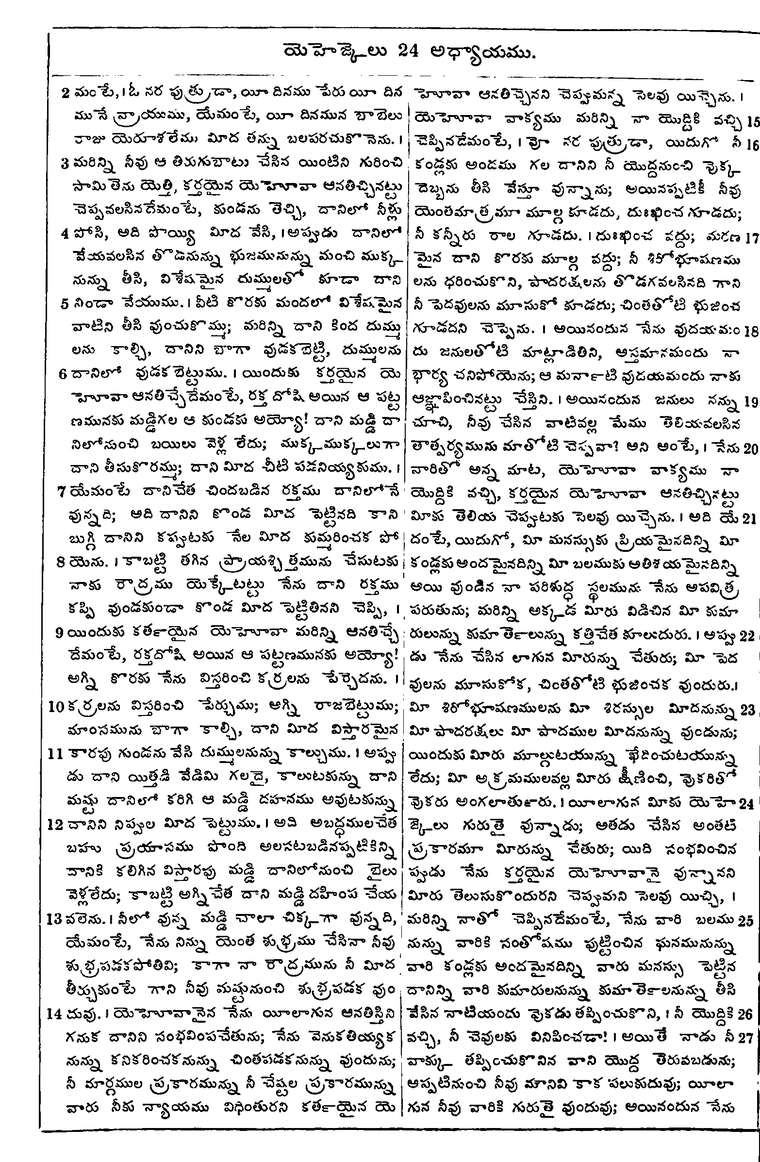 యెహెజ్కెలు 24 అధ్యాయము.
2 మంటే, । ఓ నర పుత్రుడా, యీ దినము పేరు యీ దిన
మునే వ్రాయుము, యేమంటే, యీ దినమున బాబెలు
రాజు యెరూశలేము మీద తన్ను బలపరచుకొనెను. ।
3 మరిన్ని నీవు ఆ తిరుగుబాటు చేసిన యింటిని గురించి
సామితెను యెత్తి, కర్తయైన యెహోవా ఆనతిచ్చినట్టు
చెప్పవలసినదేమంటే, కుండను తెచ్చి, దానిలో నీళ్లు
4 పోసి, అది పొయ్యి మీద వేసి, । అప్పుడు దానిలో
వేయవలసిన తొడనున్ను భుజమునున్ను మంచి ముక్క
నున్ను తీసి, విశేషమైన దుమ్ములతో కూడా దాని
5 నిండా వేయుము. । వీటి కొరకు మందలో విశేషమైన
వాటిని తీసి వుంచుకొమ్ము; మరిన్ని దాని కింద దుమ్ము
లను కాల్చి, దానిని బాగా వుడకబెట్టి, దుమ్ములను
6 దానిలో వుడకబెట్టుము. । యిందుకు కర్తయైన యె
హోవా ఆనతిచ్చేదేమంటే, రక్త దోషి అయిన ఆ పట్ట
ణమునకు మడ్డిగల ఆ కుండకు అయ్యో! దాని మడ్డి దా
నిలోనుంచి బయిలు వెళ్ల లేదు; ముక్కముక్కలుగా
దాని తీసుకొరమ్ము; దాని మీద చీటి పడనియ్యకుము. ।
7 యేమంటే దానిచేత చిందబడిన రక్తము దానిలోనే
వున్నది; అది దానిని కొండ మీద పెట్టినది కాని
బుగ్గి దానిని కప్పుటకు నేల మీద కుమ్మరించక పో
8 యెను. । కాబట్టి తగిన ప్రాయశ్చిత్తమును చేసుటకు
నాకు రౌద్రము యెక్కేటట్టు నేను దాని రక్తము
కప్పి వుండకుండా కొండ మీద పెట్టితినని చెప్పి, ।
9 యిందుకు కర్తయైన యెహోవా మరిన్ని ఆనతిచ్చే
దేమంటే, రక్తదోషి అయిన ఆ పట్టణమునకు అయ్యో!
అగ్ని కొరకు నేను విస్తరించి కర్రలను పేర్చెదను. ।
10 కర్రలను విస్తరించి పేర్చుము; అగ్ని రాజబెట్టుము;
మాంసమును బాగా కాల్చి, దాని మీద విస్తారమైన
11 కారపు గుండను వేసి దుమ్ములనున్ను కాల్చుము. । అప్పు
డు దాని యిత్తడి వేడిమి గలదై, కాలుటకున్ను దాని
మష్టు దానిలో కరిగి ఆ మడ్డి దహనము అవుటకున్ను
12 దానిని నిప్పుల మీద పెట్టుము. । అది అబద్ధములచేత
బహు ప్రయాసము పొంది అలసటబడినప్పటికిన్ని
దానికి కలిగిన విస్తారపు మడ్డి దానిలోనుంచి బైలు
వెళ్లలేదు; కాబట్టి అగ్నిచేత దాని మడ్డి దహింప చేయ
13 వలెను. । నీలో వున్న మడ్డి చాలా చిక్కగా వున్నది,
యేమంటే, నేను నిన్ను యెంత శుభ్రము చేసినా నీవు
శుభ్రపడకపోతివి; కాగా నా రౌద్రమును నీ మీద
తీర్చుకుంటే గాని నీవు మష్టునుంచి శుభ్రపడక వుం
14 దువు. । యెహోవానైన నేను యీలాగున ఆనతిస్తిని
గనుక దానిని సంభవింపచేతును; నేను వెనుకతియ్యక
నున్ను కనికరించకనున్ను చింతపడకనున్ను వుందును;
నీ మార్గముల ప్రకారమున్ను నీ చేష్టల ప్రకారమున్ను
వారు నీకు న్యాయము విధింతురని కర్తయైన యె
హోవా ఆనతిచ్చెనని చెప్పుమన్న సెలవు యిచ్చెను. ।
యెహోవా వాక్యము మరిన్ని నా యొద్దికి వచ్చి 15
చెప్పినదేమంటే, । వో నర పుత్రుడా, యిదుగో నీ 16
కండ్లకు అందము గల దానిని నీ యొద్దనుంచి వొక్క
దెబ్బను తీసి వేస్తూ వున్నాను; అయినప్పటికీ నీవు
యెంతమాత్రమూ మూల్గ కూడదు, దుఃఖించ గూడదు;
నీ కన్నీరు రాల గూడదు. । దుఃఖించ వద్దు; మరణ 17
మైన దాని కొరకు మూల్గ వద్దు; నీ శిరోభూషణము
లను ధరించుకొని, పాదరక్షలను తొడగవలసినది గాని
నీ పెదవులను మూసుకో కూడదు; చింతతోటి భుజించ
గూడదని చెప్పెను. । అయినందున నేను వుదయమం 18
దు జనులతోటి మాట్లాడితిని, అస్తమానమందు నా
భార్య చనిపోయెను; ఆ మర్నాటి వుదయమందు నాకు
ఆజ్ఞాపించినట్టు చేస్తిని. । అయినందున జనులు నన్ను 19
చూచి, నీవు చేసిన వాటివల్ల మేము తెలియవలసిన
తాత్పర్యమును మాతోటి చెప్పవా? అని అంటే, । నేను 20
వారితో అన్న మాట, యెహోవా వాక్యము నా
యొద్దికి వచ్చి, కర్తయైన యెహోవా ఆనతిచ్చినట్టు
మీకు తెలియ చెప్పుటకు సెలవు యిచ్చెను. । అది యే 21
దంటే, యిదుగో, మీ మనస్సుకు ప్రియమైనదిన్ని మీ
కండ్లకుఅందమైనదిన్ని మీ బలముకు అతిశయమైనదిన్ని
అయి వుండిన నా పరిశుద్ధ స్థలమును నేను అపవిత్ర
పరుతును; మరిన్ని అక్కడ మీరు విడిచిన మీ కుమా
రులున్ను కుమార్తెలున్ను కత్తిచేత కూలుదురు. । అప్పు 22
డు నేను చేసిన లాగున మీరున్ను చేతురు; మీ పెద
వులను మూసుకోక, చింతతోటి భుజించక వుందురు. ।
మీ శిరోభూషణములను మీ శిరస్సుల మీదనున్ను 23
మీ పాదరక్షలు మీ పాదముల మీదనున్ను వుండును;
యిందుకు మీరు మూల్గుటయున్ను ఖేదించుటయున్ను
లేదు; మీ అక్రమములవల్ల మీరు క్షీణించి, వొకరితో
వొకరు అంగలార్తురు. । యీలాగున మీకు యెహె 24
జ్కెలు గురుతై వున్నాడు; అతడు చేసిన అంతటి
ప్రకారమూ మీరున్ను చేతురు; యిది సంభవించిన
ప్పుడు నేను కర్తయైన యెహోవానై వున్నానని
మీరు తెలుసుకొందురని చెప్పుమని సెలవు యిచ్చి, ।
మరిన్ని నాతో చెప్పినదేమంటే, నేను వారి బలము 25
నున్ను వారికి సంతోషము పుట్టించిన ఘనమునున్ను
వారి కండ్లకు అందమైనదిన్ని వారు మనస్సు పెట్టిన
దానిన్ని వారి కుమారులనున్ను కుమార్తెలనున్ను తీసి
వేసిన నాటియందు వొకడు తప్పించుకొని, । నీ యొద్దికి 26
వచ్చి, నీ చెవులకు వినిపించడా! । అయితే నాడు నీ 27
వాక్కు తప్పించుకొనిన వాని యొద్ద తెరువబడును;
అప్పటినుంచి నీవు మానివి కాక పలుకుదువు; యీలా
గున నీవు వారికి గురుతై వుందువు; అయినందున నేను